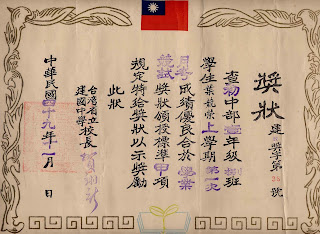 獎狀
建獎字第26號
查初中部壹年級捌班
學生葉能榮上學期第一次
月考成績優良合於學業
競試獎狀頒投標準甲項
規定特給獎狀以示獎勵
此狀
台灣省立
建國中學
校長
中華民國四十九年一月 日